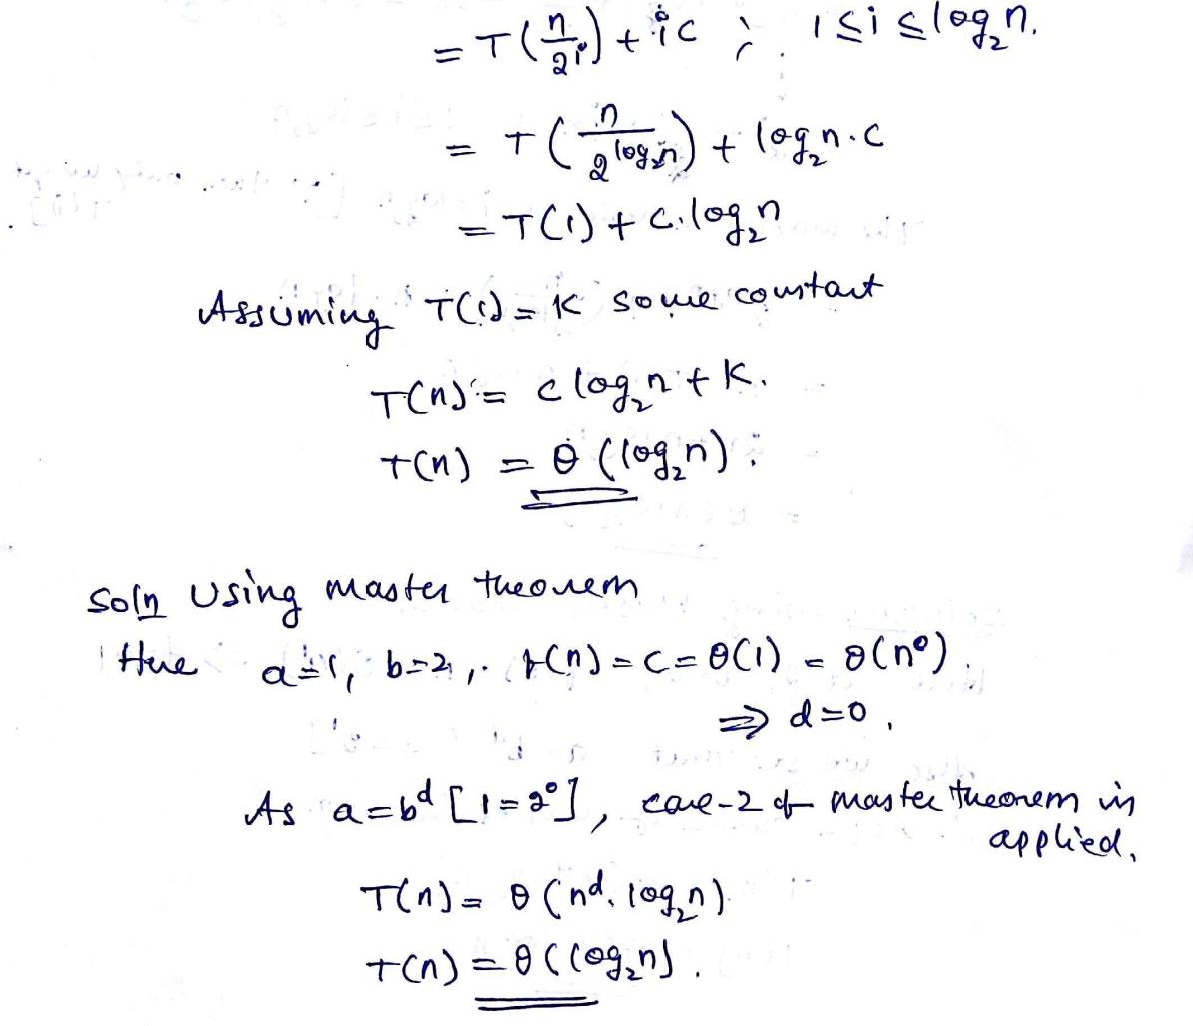 = T(n/2^i) + ic ; 1 ≤ i ≤ log₂n.
= T(n/2^log₂n) + log₂n.c
= T(1) + c.log₂n
Assuming T(1) = K some constant
T(n) = c log₂n + K.
T(n) = θ(log₂n).
Soln Using master theorem
Here a=1, b=2, f(n) = c = θ(1) = θ(n⁰).
⇒ d=0,
As a=b^d [1=2⁰], case-2 of master theorem is
applied.
T(n) = θ(n^d. log₂n)
T(n) = θ(log₂n).